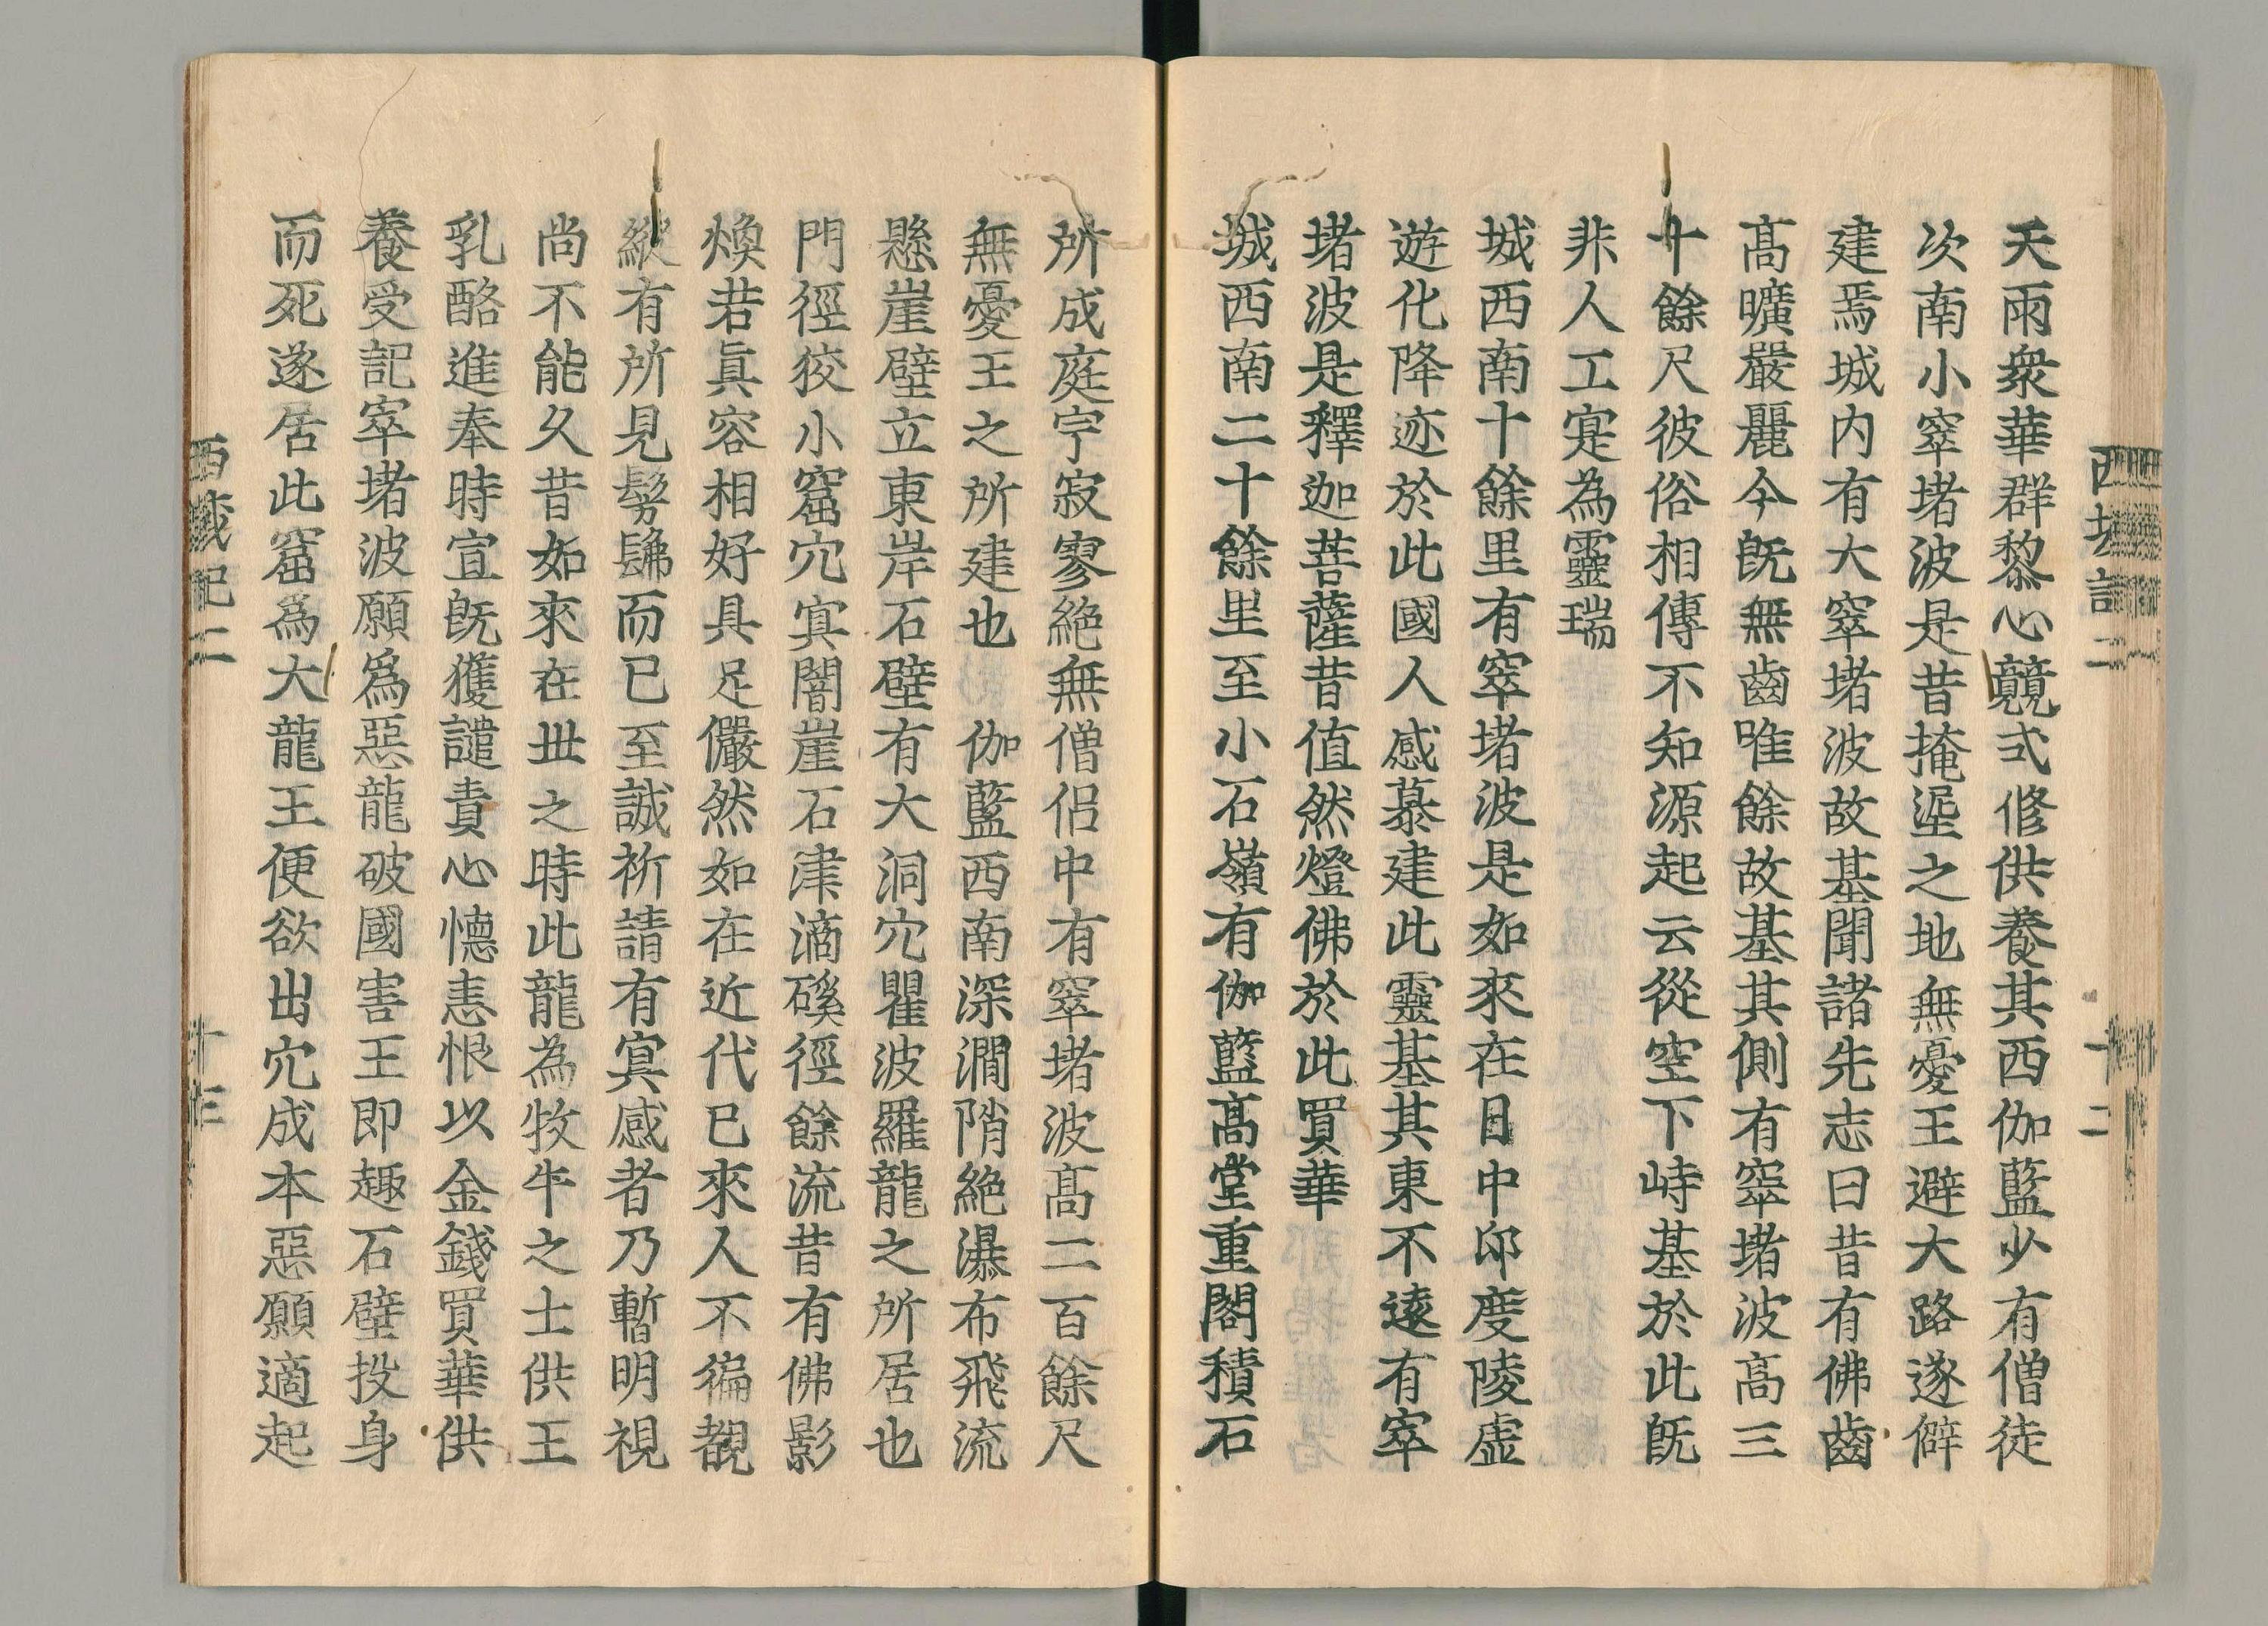 西域記二 十二
天雨衆華群黎心競式修供養其西伽藍少有僧徒
次南小窣堵波是昔掩埿之地無憂王避大路遂僻
建焉城内有大窣堵波故基聞諸先志曰昔有佛齒
高曠嚴麗今旣無齒唯餘故基其側有窣堵波高三
十餘尺彼俗相傳不知源起云從空下峙基於此旣
非人工寔為靈瑞
城西南十餘里有窣堵波是如來在日中印度陵虛
遊化降迹於此國人感慕建此靈基其東不遠有窣
堵波是釋迦菩薩昔值然燈佛於此買華
城西南二十餘里至小石嶺有伽藍高堂重閣積石
所成庭宇寂寥絶無僧侶中有窣堵波高二百餘尺
無憂王之所建也 伽藍西南深澗陗絶瀑布飛流
懸崖壁立東岸石壁有大洞穴瞿波羅龍之所居也
門徑狡小窟穴寘闇崖石津滴磎徑餘流昔有佛影
煥若眞容相好具足儼然如在近代已來人不徧覩
縱有所見髣髴而已至誠祈請有寘感者乃暫明視
尚不能久昔如來在世之時此龍為牧牛之士供王
乳酪進奉時宜旣獲譴責心懷恚恨以金錢買華供
養受記窣堵波願爲惡龍破國害王即趣石壁投身
而死遂居此窟爲大龍王便欲出穴成本惡願適起
西域記二 十三